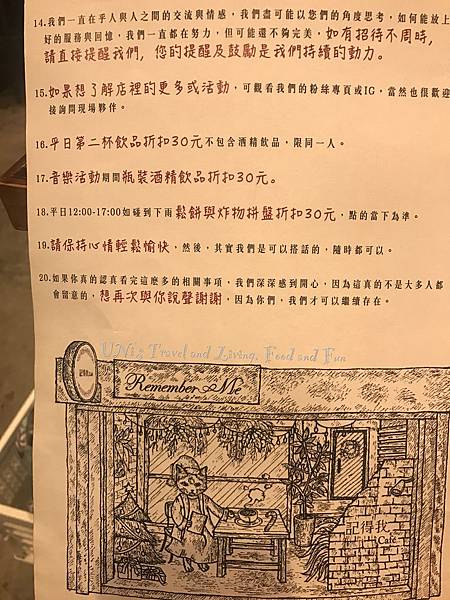 14.我們一直在乎人與人之間的交流與情感，我們盡可能以您們的角度思考，如何能放上
好的服務與回憶，我們一直都在努力，但可能還不夠完美，如有招待不周時，
請直接提醒我們，您的提醒及鼓勵是我們持續的動力。
15.如果想了解店裡的更多或活動，可觀看我們的粉絲專頁或IG，當然也很歡迎
接詢問現場夥伴。
16.平日第二杯飲品折扣30元不包含酒精飲品，限同一人。
17.音樂活動期間瓶裝酒精飲品折扣30元。
18.平日12:00-17:00如碰到下雨鬆餅與炸物拼盤折扣30元，點的當下為準。
19.請保持心情輕鬆愉快，然後，其實我們是可以搭話的，隨時都可以。
20.如果你真的認真看完這麼多的相關事項，我們深深感到開心，因為這真的不是大多人都
會留意的，想再次與你說聲謝謝，因為你們，我們才可以繼續存在。
UNi's Travel and Living, Food and Fun
Remember Me
記得我
Café